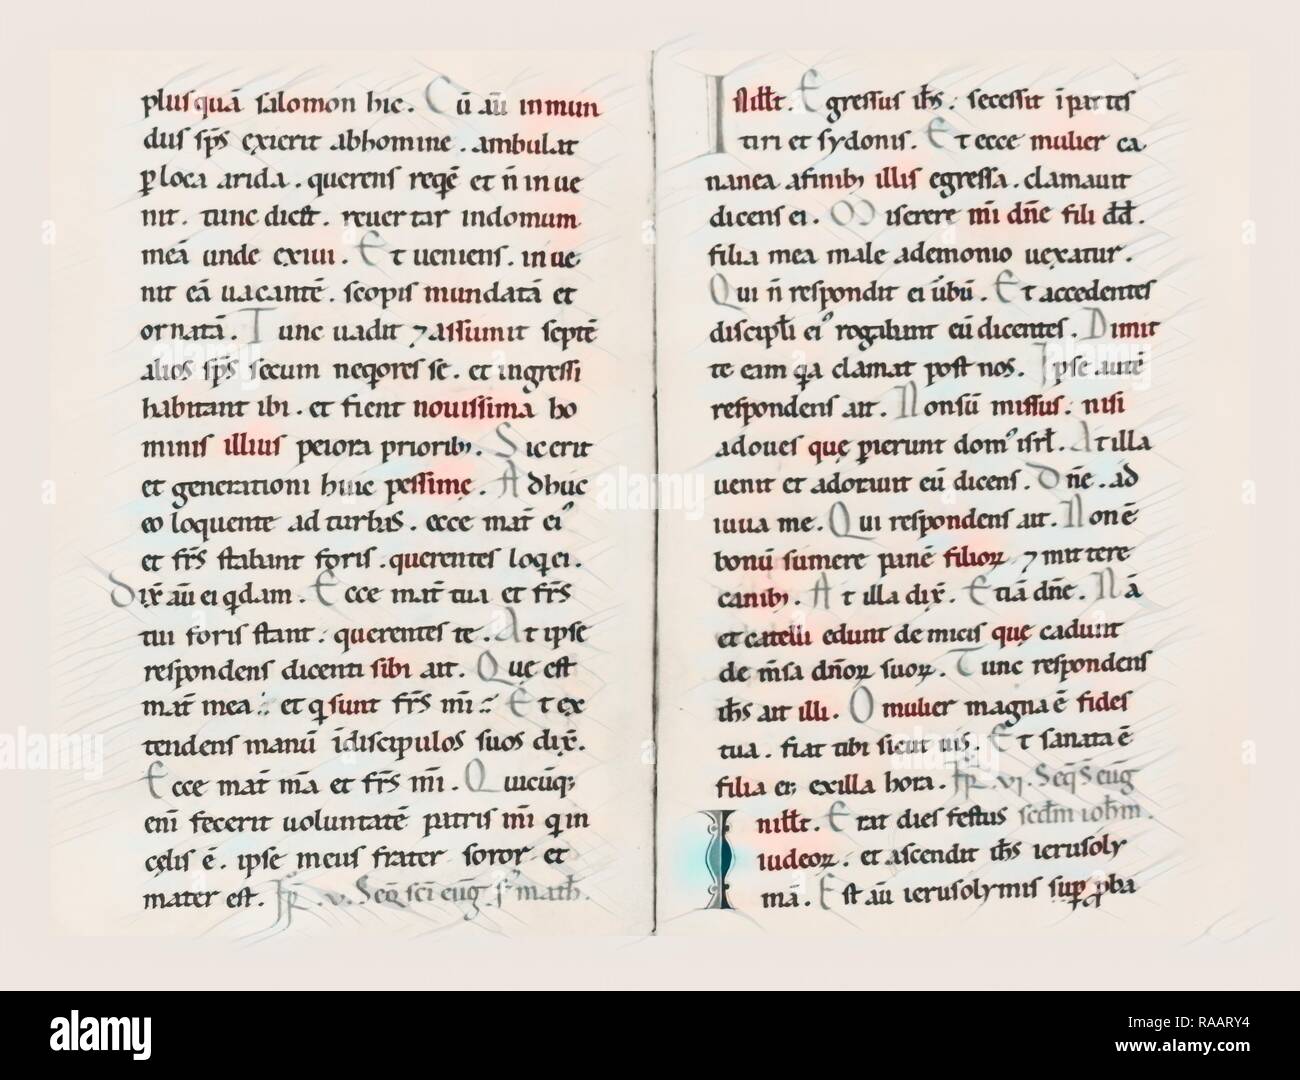 pluſquā ſalomon hic. Cū aū inmun
duſ ſp̄ſ exierit abhomine. ambulat
p̱ loca arida. querenſ reqē et n̄ inue
nit. tunc dicet. reuertar indomum
meā unde exiui. Et ueniens. inue
nit eā uacantē. ſcopiſ mundatā et
ornatā. Tunc uadit ⁊aſſumit ſeptē
alios ſp̄ſ ſecum neqores ſe. et ingreſſi
habitant ibi. et fient nouiſſima ho
miniſ illiuſ peiora priorib;. Sicerit
et generationi huic peſſimę. Adhuc
eo loquente ad turbas. ecce mat̄ eiꝰ
et fr̄ſ ſtabant foriſ. querenteſ loqei.
Dix̄ aū ei qdam. Ecce mat̄ tua et fr̄ſ
tui foriſ ſtant. querenteſ te. At ipſe
reſpondenſ dicenti ſibi ait. Que eſt
mat̄ mea et q ſunt fr̄ſ mī Et ex
tendenſ manū īdiſcipulos ſuos dix̄.
Ecce mat̄ m̄a et fr̄ſ mī. Quicūq;
enī fecerit uoluntatē patriſ mī q in
cęliſ ē. ipſe meuſ frater ſoror et
mater eſt. FR̄. v. Seq̄ ſc̄i eūg. ſ' math̄.
Inillt̄. Egreſſuſ ih̄ſ. ſeceſſit īparteſ
tiri et ſydoniſ. Et ecce mulier ca
nanea afinib; illiſ egreſſa. clamauit
dicenſ ei. Miſerere mī dn̄e fili dd̄.
filia mea male ademonio uexatur.
Qui n̄ reſpondit ei ūbū. Et accedenteſ
diſcipl̄i eiꝰ rogabant eū dicenteſ. Dimit
te eam qa clamat poſt nos. Ipſe autē
reſpondenſ ait. Nonſū miſſuſ. niſi
adoueſ quę ꝑierunt domꝰ iſrl̄. At illa
uenit et adorauit eū dicenſ. Dn̄e. ad
iuua me. Qui reſpondenſ ait. Non ē
bonū ſumere panē filioꝝ ⁊ mittere
canib;. At illa dix̄. Etiā dn̄e. Nā
et catelli edunt de miciſ quę cadunt
de m̄ſa dn̄oꝝ ſuoꝝ. Tunc reſpondenſ
ih̄ſ ait illi. O mulier magna ē fideſ
tua. fiat tibi ſicut uiſ. Et ſanata ē
filia ei; exilla hora. FR̄. vi. Seq̄ S eūg
Inillt̄. Erat dieſ feſtus ſcd̄m ioh̄m.
iudeoꝝ. et aſcendit ih̄ſ ieruſoly
mā. Eſt aū ieruſolymiſ ſuꝑ ꝓba
alamy
Image ID: RAARY4
www.alamy.com